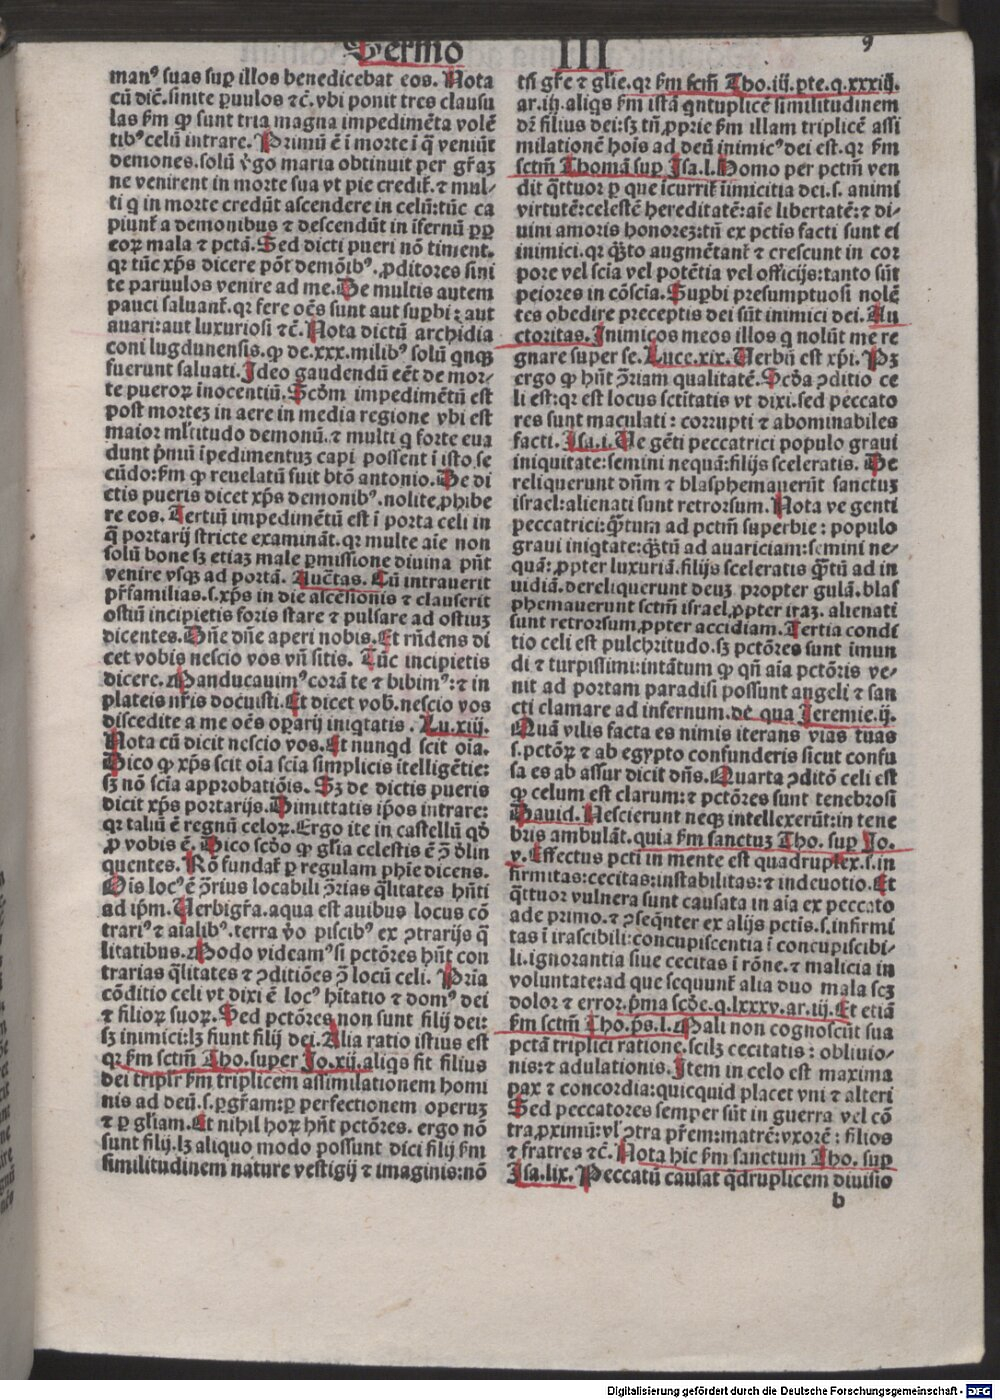 Sermo III 9
manꝰ suas suꝑ illos benedicebat eos. Nota
cū dic̄. sinite ꝑuulos ⁊c̄. vbi ponit tres clausu
las ẜm ꝙ sunt tria magna impedimēta volē
tibꝰ celū intrare. Primū ē ī morte ī q̄ veniūt
demones. solū v̓go maria obtinuit per gr̄aꝫ
ne venirent in morte sua vt pie credit̄. ⁊ mul⸗
ti q in morte credūt ascendere in celū: tūc ca
piunt̄ a demonibus ⁊ descendūt in īfernū ꝓꝑ
eoꝝ mala ⁊ pctā. Sed dicti pueri nō timent.
qꝛ tūc xp̄s dicere pōt demōibꝰ. ꝓditores sini
te paruulos venire ad me. De multis autem
pauci saluant̄. qꝛ fere oēs sunt aut suꝑbi: aut
auari: aut luxuriosi ⁊c̄. Nota dictū archidia
coni lugdunensis. ꝙ de .xxx. milibꝰ solū qnqꝫ
fuerunt saluati. Ideo gaudendū eēt de mor⸗
te pueroꝝ inocentiū. Scd̓m impedimētū est
post morteꝫ in aere in media regione vbi est
maior ml̓titudo demonū. ⁊ multi q forte eua
dunt pⁱmū īpedimentuꝫ capi possent ī isto se
cūdo: ẜm ꝙ reuelatū fuit btō antonio. De di
ctis pueris dicet xp̄s demonibꝰ. nolite ꝓhibe
re eos. Tertiū impedimētū est ī porta celi in
q̄ portarij stricte examināt. qꝛ multe aīe non
solū bone sꝫ etiaꝫ male ꝑmissione diuina pn̄t
venire vsqꝫ ad portā. Auc̄tas. Cū intrauerit
pr̄familias. s. xp̄s in die ascēsionis ⁊ clauserit
ostiū incipietis foris stare ⁊ pulsare ad ostiuꝫ
dicentes. Dn̄e dn̄e aperi nobis. Et rn̄dens di
cet vobis nescio vos vn̄ sitis. Tūc incipietis
dicere. Manducauimꝰ corā te ⁊ bibimꝰ: ⁊ in
plateis nr̄is docuisti. Et dicet vob̓. nescio vos
discedite a me oēs oꝑarij iniqtatis. Lu. xiij.
Nota cū dicit nescio vos. Et nunqd scit oīa.
Dico ꝙ xp̄s scit oīa scīa simplicis ītelligētie:
sꝫ nō scīa approbatiōis. Sꝫ de dictis pueris
dicit xp̄s portarijs. Dimittatis ip̄os intrare:
qꝛ taliū ē regnū celoꝝ. Ergo ite in castellū qd̓
ꝓ vobis ē. Dico scd̓o ꝙ gl̓ia celestis ē ꝯ̄ d̓lin
quentes. Rō fundat̄ ꝑ regulam ph̄ie dicens.
Ois locꝰ ē ꝯ̄rius locabili ꝯ̄rias q̄litates hn̄ti
ad ip̄m. Verbigr̄a. aqua est auibus locus cō
trariꝰ ⁊ aīalibꝰ. terra v̓o piscibꝰ ex ꝯtrarijs q̄
litatibus. Modo videamꝰ si pctōres hn̄t con
trarias q̄litates ⁊ ꝯditiōes ꝯ̄ locū celi. Pria
cōditio celi vt dixi ē locꝰ hitatio ⁊ domꝰ dei
⁊ filioꝝ suoꝝ. Sed pctōres non sunt filij dei:
sꝫ inimici: lꝫ fiunt filij dei. Alia ratio istius est
qꝛ ẜm sctm̄ Tho. super Jo. xij. aliqs fit filius
dei triplr̓ ẜm triplicem assimilationem homi
nis ad deū. s. ꝑ gr̄am: ꝑ perfectionem operuꝫ
⁊ ꝑ gl̓iam. Et nihil hoꝝ hn̄t pctōres. ergo nō
sunt filij. lꝫ aliquo modo possunt dici filij ẜm
similitudinem nature vestigij ⁊ imaginis: nō
tn̄ gr̄e ⁊ gl̓ie. qꝛ ẜm sctm̄ Tho. iij. pte. q. xxxiij.
ar. iij. aliqs ẜm istā qntuplicē similitudinem
dr̄ filius dei: sꝫ tn̄ ꝓprie ẜm illam triplicē assi
milationē hoīs ad deū inimicꝰ dei est. qꝛ ẜm
sctm̄ Thomā suꝑ Isa. l. Homo per pctm̄ ven
dit q̄ttuor ꝑ que īcurrit̄ īimicitia dei. s. animi
virtutē: celestē hereditatē: aīe libertatē: ⁊ di⸗
uini amoris honoreꝫ: tū ex pctis facti sunt ei
inimici. qꝛ q̄ꝫto augmētant̄ ⁊ crescunt in cor
pore vel scīa vel potētia vel officijs: tanto sūt
peiores in cōscīa. Suꝑbi presumptuosi nolē
tes obedire preceptis dei sūt inimici dei. Au
ctoritas. Inimicos meos illos q nolūt me re
gnare super se. Luce. xix. Verbū est xp̄i. Pꝫ
ergo ꝙ hn̄t ꝯ̄riam qualitatē. Scd̓a ꝯditio ce
li est: qꝛ est locus sctitatis vt dixi. sed peccato
res sunt maculati: corrupti ⁊ abominabiles
facti. Isa. i. Ve gēti peccatrici populo graui
iniquitate: semini nequā: filijs sceleratis. De
reliquerunt dn̄m ⁊ blasphemauerūt sanctuꝫ
israel: alienati sunt retrorsum. Nota ve genti
peccatrici: q̄ꝫtum ad pctm̄ superbie: populo
graui iniqtate: q̄ꝫtū ad auariciam: semini ne⸗
quā: ꝓpter luxuriā. filijs sceleratis q̄ꝫtū ad in
uidiā. dereliquerunt deuꝫ propter gulā. blas
phemauerunt sctm̄ israel, ꝓpter iraꝫ. alienati
sunt retrorsum, ꝓpter accidiam. Tertia condi
tio celi est pulchritudo. sꝫ pctōres sunt imun
di ⁊ turpissimi: intātum ꝙ qn̄ aīa pctōris ve⸗
nit ad portam paradisi possunt angeli ⁊ san
cti clamare ad infernum. de qua Jeremie. ij.
Quā vilis facta es nimis iterans vias tuas
s. pctōꝝ ⁊ ab egypto confunderis sicut confu
sa es ab assur dicit dn̄s. Quarta ꝯditō celi est
ꝙ celum est clarum: ⁊ pctōres sunt tenebrosi
Dauid. Nescierunt neqꝫ intellexerūt: in tene
bris ambulāt. quia ẜm sanctuꝫ Tho. suꝑ Jo.
v. Effectus pcti in mente est quadruplex. s. in
firmitas: cecitas: instabilitas: ⁊ indeuotio. Et
q̄ttuor vulnera sunt causata in aīa ex peccato
ade primo. ⁊ ꝯseq̄nter ex alijs pctis. s. infirmi
tas ī irascibili: concupiscentia ī concupiscibi⸗
li. ignorantia siue cecitas ī rōne. ⁊ malicia in
voluntate: ad que sequunt̄ alia duo mala scꝫ
dolor ⁊ error. pⁱma scd̓e. q. lxxxv. ar. iij. Et etiā
ẜm sctm̄ Tho. ps̄. l. Mali non cognoscūt sua
pctā triplici ratione. scilꝫ cecitatis: obliuio⸗
nis: ⁊ adulationis. Item in celo est maxima
pax ⁊ concordia: quicquid placet vni ⁊ alteri
Sed peccatores semper sūt in guerra vel cō
tra, ꝓximū: vl̓ ꝯtra pr̄em: matrē: vxorē: filios
⁊ fratres ⁊c̄. Nota hic ẜm sanctum Tho. suꝑ
Isa. lix. Peccatū causat q̄druplicem diuisio
b
Digitalisierung gefördert durch die Deutsche Forschungsgemeinschaft - DFG